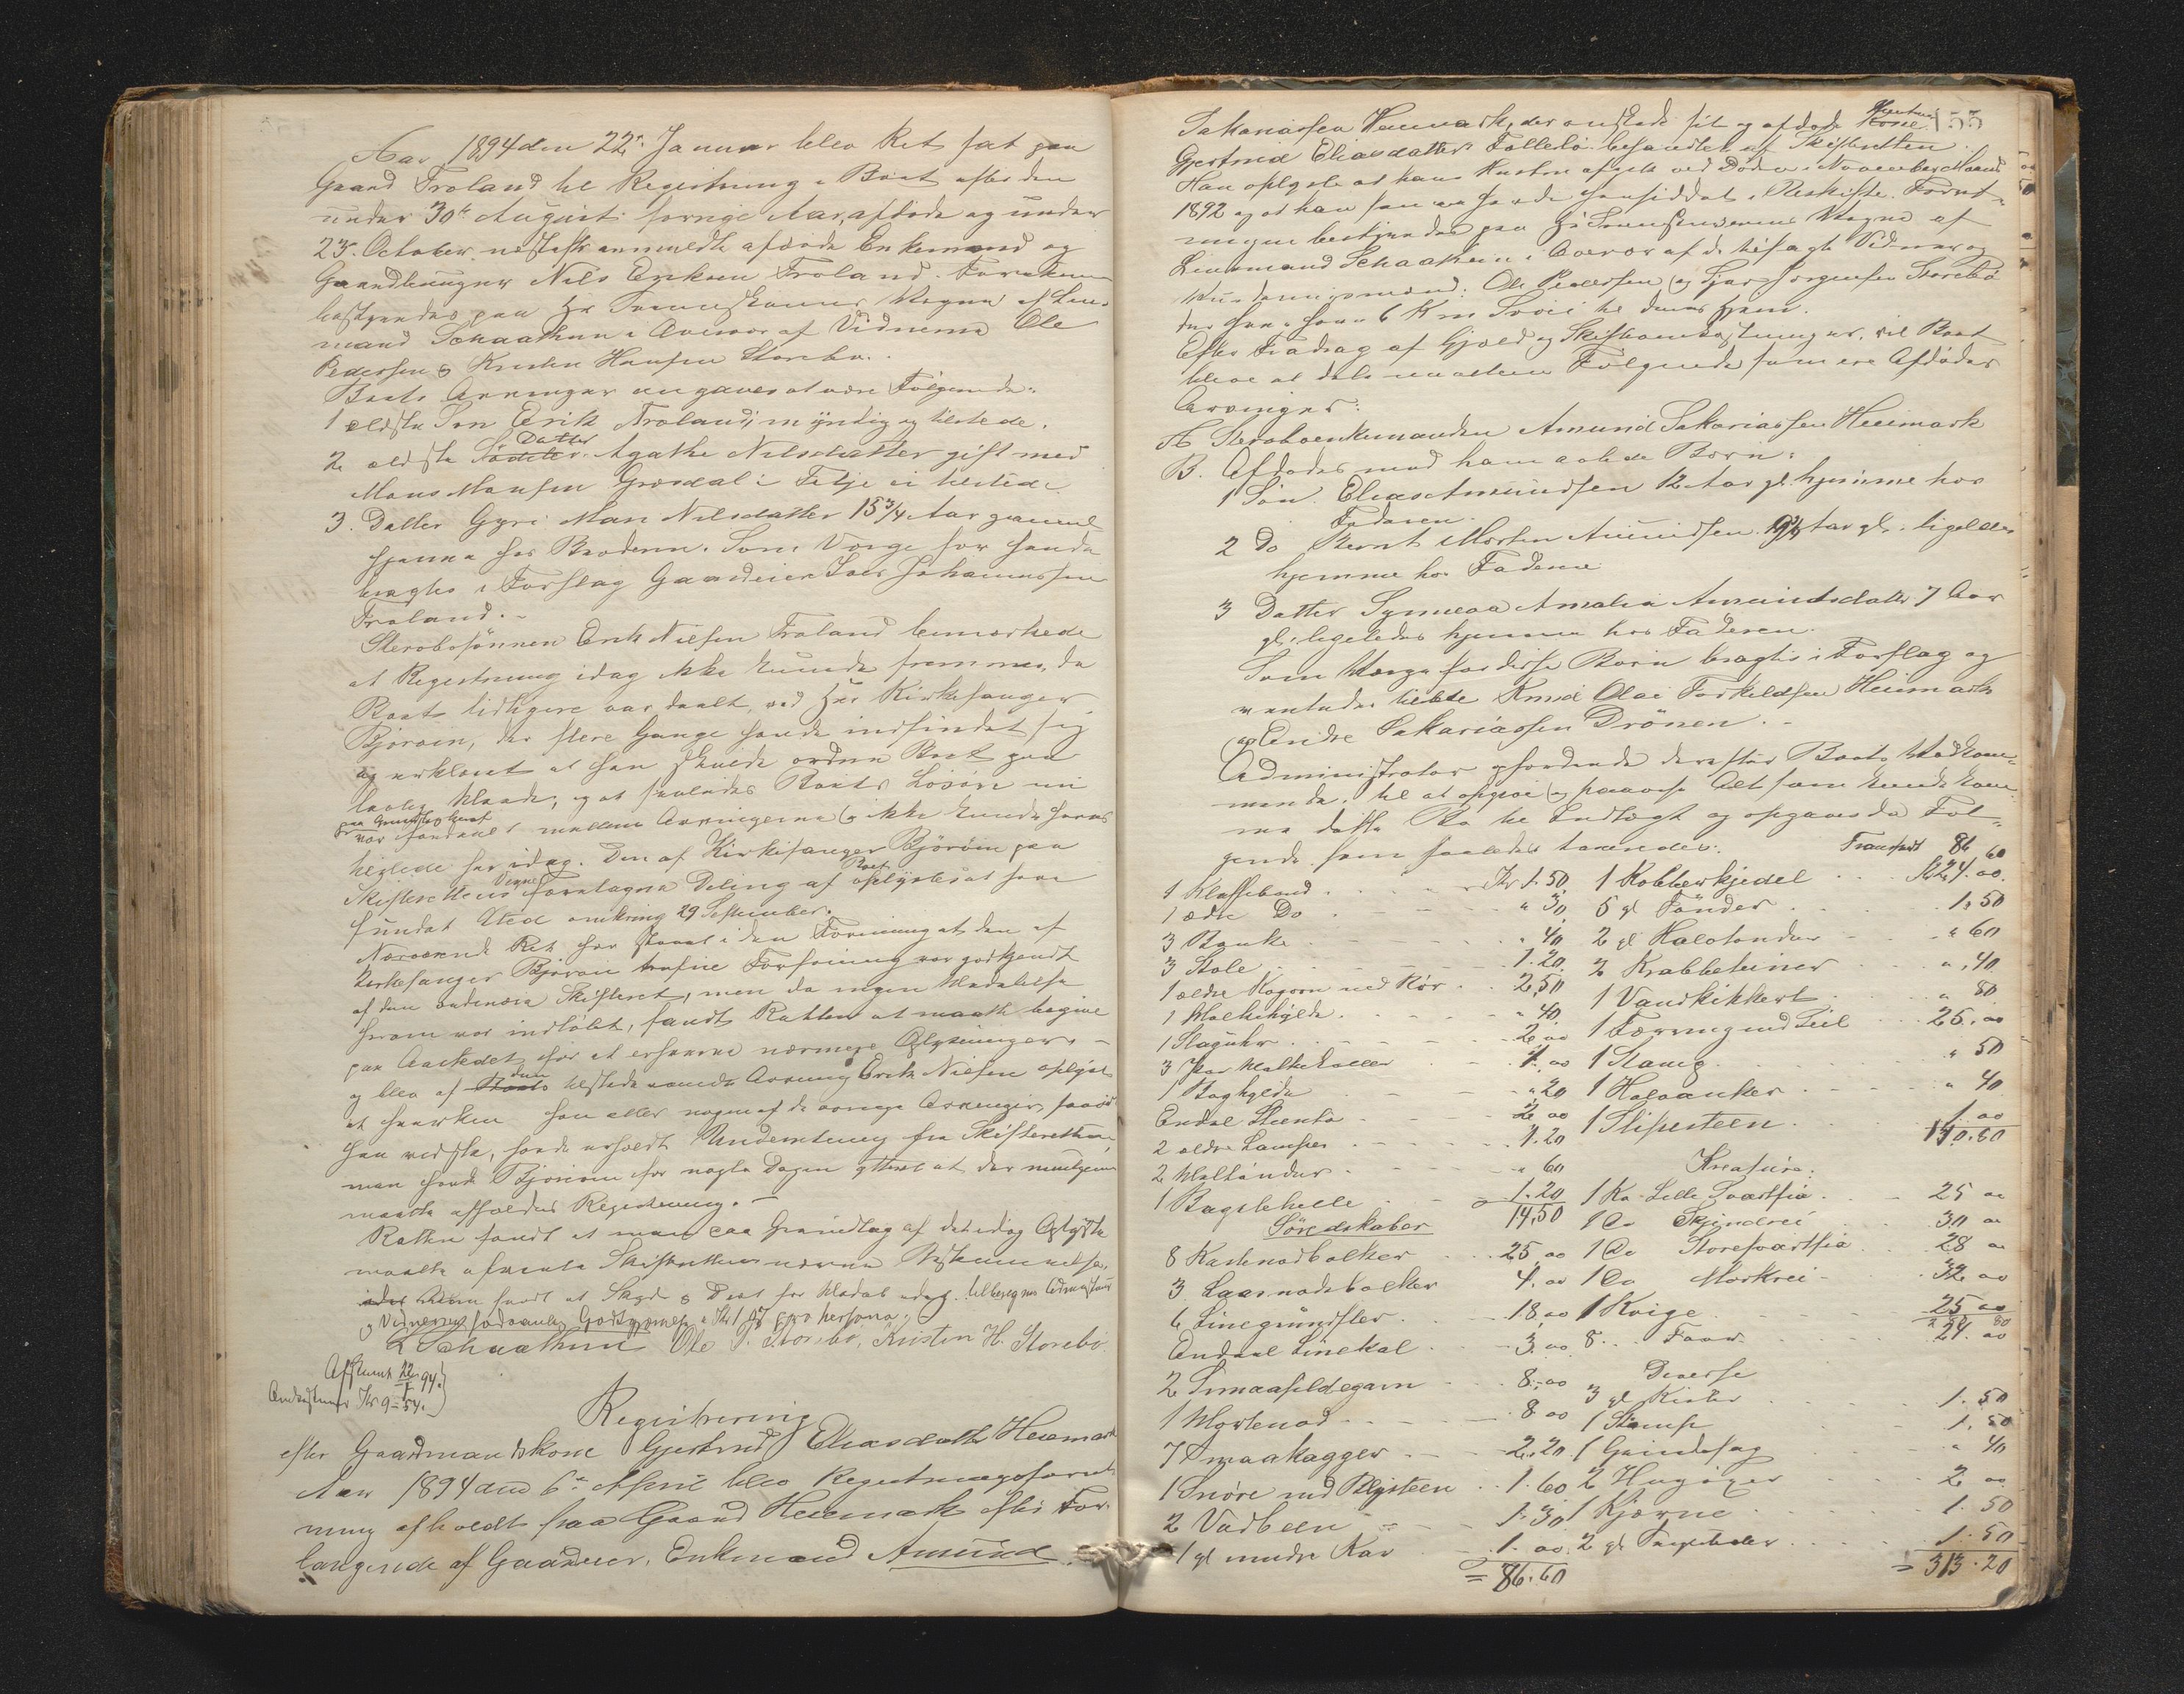 Aar 1894 den 22de Januar blev Ret sat paa
Gaard Troland til Registrering i Boet efter den
under 30te August forrige Aar, afdøde og under
23. October næstefter anmeldte afdøde Enkemand og
Gaardbruger Nils Eriksen Troland. Forretningen
bestyredes paa Hr Sorenskriverens Vegne af Lens-
mand Schaathun i Overvær af Vidnerne Ole
Pedersen & Kristen Hansen Storebø.
Boets Arvinger angaves at være Følgende:
1 ældste Søn Erik Troland, myndig og tilstede.
2 ældste Datter Agathe Nilsdatter gift med
Mons Monsen Grosdal i Fitje ei tilstede
3. Datter Gyri Mari Nilsdatter 15 3/4 Aar gammel
hjemme hos Broderen. Som Værge for hende
bragtes i Forslag Gaardeier Johannessen
Troland.-
Sterbosønnen Erik Nilsen Troland bemærkede
at Registrering idag ikke kunde fremmes, da
Boet tidligere var deelt, ved Hr Kirkesanger
Bjørøen, der flere Gange havde indfundet sig
og erklæret at han skulde ordne Boet paa
lovlig Maade, og at saaledes Boets Løsøre nu
paa Grundlag heraf
var fordeelt mellem Arvingerne & ikke kunde haves
tilstede her idag. Den af Kirkesanger Bjørøen paa
Skifterettens Vegne foretagne Deling af Boet oplystes at have
fundet Sted omkring 29 September.
Nærværende Ret har staaet i den Formening at den af
Kirkesanger Bjørøen trufne Forføining var godkjendt
af den ordinære Skifteret, men da ingen Meddelelse
herom var indløbet, fandt Retten at maatte begive
paa Aastedet for at erfare nærmere Oplysninger. -
og blev af den tilstedeværende Arving Erik Nilsen oplyst
at hverken han eller nogen af de øvrige Arvinger, saavidt
han vidste, havde erholdt Underretning fra Skifteretten,
men havde Bjørøen for nogle Dage yttret at der muligens
maatte afholdes Registrering. -
Retten fandt at man paa Grundlag af det idag Oplyste
maatte afvente Skifterettens nærmere Bestemmelse.
tilberegnes Lensmanden
& Vidnerne sædvanlig Godtgjørelse
L Schaathun Ole P. Storebø, Kristen H. Storebø
Afskrevet 22/1 94.
Omkostninger Kr 9-54.
Registrering
efter Gaardmandskone Gjertrud Eliasdatter Heiemark
Aar 1894 den 6te April blev Registreringsforret-
ning afholdt paa Gaard Heiemark efter For-
langende af Gaardeier, Enkemand Amund
155
Sakariassen Heiemark, der ønskede sit og afdøde Hustru
Gjertrud Eliasdatter Følleløs behandlet af Skifteretten.
Han oplyste at hans Hustru afgik ved Døden i November Maaned
1892 og at han senere havde hensiddet i uskiftet Bo. Forret-
ningen bestyredes paa Hr Sorenskriverens Vegne af
Lensmand Schaathun i Overvær af de tilsagte Vidner og
Vurderingsmænd: Ole Pedersen & Hans Jørgensen Storebø
der havde hver 6 Km Sovei til deres Hjem.
Efter Fradrag af Gjæld og Skifteomkostninger, vil Boet
blive at dele mellem Følgende som ere Afdødes
Arvinger:
A Sterboenkemanden Amund Sakariassen Heiemark
B. Afdødes med ham avlede Børn:
1 Søn Elias Amundsen 12 Aar gl. hjemme hos
Faderen.
2 Do Bernt Martin Amundsen 9 3/4 Aar gl. ligeledes
hjemme hos Faderen
3 Datter Synneva Amalia Amundsdatter 7 Aar
gl: ligeledes hjemme hos Faderen.
Som Værge for disse Børn bragtes i Forslag og
Knud Olai Torkildsen Heiemark
og Endre Sakariassen Drønen.-
Administrator opfordrede derefter Boets Vedkom-
mende til at opgive & paavise Alt som kunde kom-
me dette Bo til Indtægt og opgaves da Føl-
gende som saaledes taxeredes: Transport 86 60
1 Klaffebord Kr 1.50 1 Kobberkjedel Kr 24.00
1 ædre Do " 30 5 gl Tønder 1.50
3 Bænke " 40 2 gl Halvtønder " 60
3 Stole 1.20 2 Krabbeteiner " 40
1 ældre Kogovn med Rør 2,50 1 Vandkikkert " 80
1 Melkehylde " 40 1 Færing med Seil 25.00
1 Slaguhr 2,00 1 Stang " 50
3 Par Melkekoller 1.00 1 Halvanker " 40
1 Boghylde " 20 1 Slipesteen 1.00
Endel Steentøi 2.00 140.80
2 ældre Lamper 1.20 Kreature:
2 Meltønder " 60 1 Ko Lille Svartsia 25 00
1 Bagstehelle 1.20 1 Do Skjindrei 30 00
14,50 1 Do Storesvartsia 28 00
Søredskaber 1 Do Morkrei 32 00
8 Kastenodbolker 25 00 1 Kvige 25 00
3 Laasnodbolker 4.00 8 Faar 24.00
6 Linegrundsler 18.00 Diverse
Endeel Linekal 3.00 3 gl Kister 1.50
2 Smaasildegarn 8.00 1 Stamp 1.50
1 Mortenod 8.00 1 Grindsag " 40
7 Smaakagger 2.20 2 Hugøxer 2 00
1 Snøre med Blysteen 1.60 1 Kjærne 1.50
2 Vadbeen 1.30 2 gl 1.50
1 gl mudre Kar 1.00 = 313.20
= 86.60